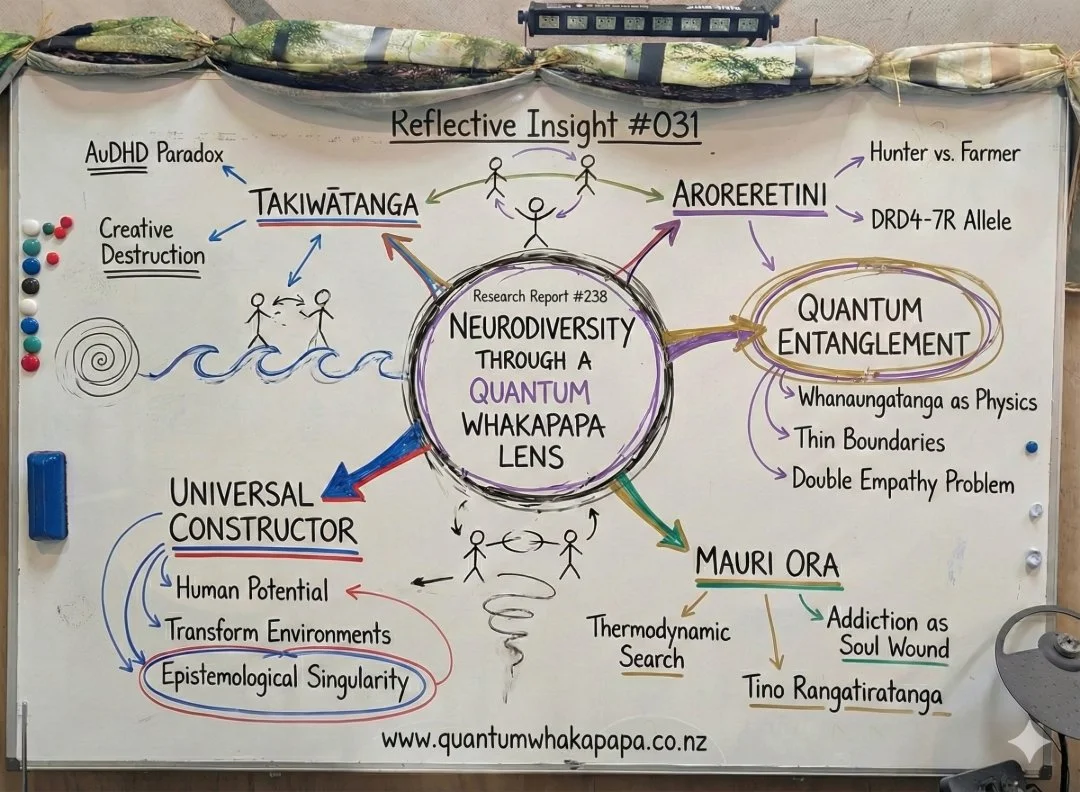 Reflective Insight #031
AuDHD Paradox
TAKIWĀTANGA
Creative
Destruction
ARORERETINI
Hunter vs. Farmer
DRD4-7R Allele
Research Report #238
NEURODIVERSITY
THROUGH A
QUANTUM
WHAKAPAPA
LENS
QUANTUM
ENTANGLEMENT
Whanaungatanga as Physics
Thin Boundaries
Double Empathy Problem
UNIVERSAL
CONSTRUCTOR
Human Potential
Transform Environments
Epistemological Singularity
MAURI ORA
Thermodynamic
Search
Addiction as
Soul Wound
Tino Rangatiratanga
www.quantumwhakapapa.co.nz